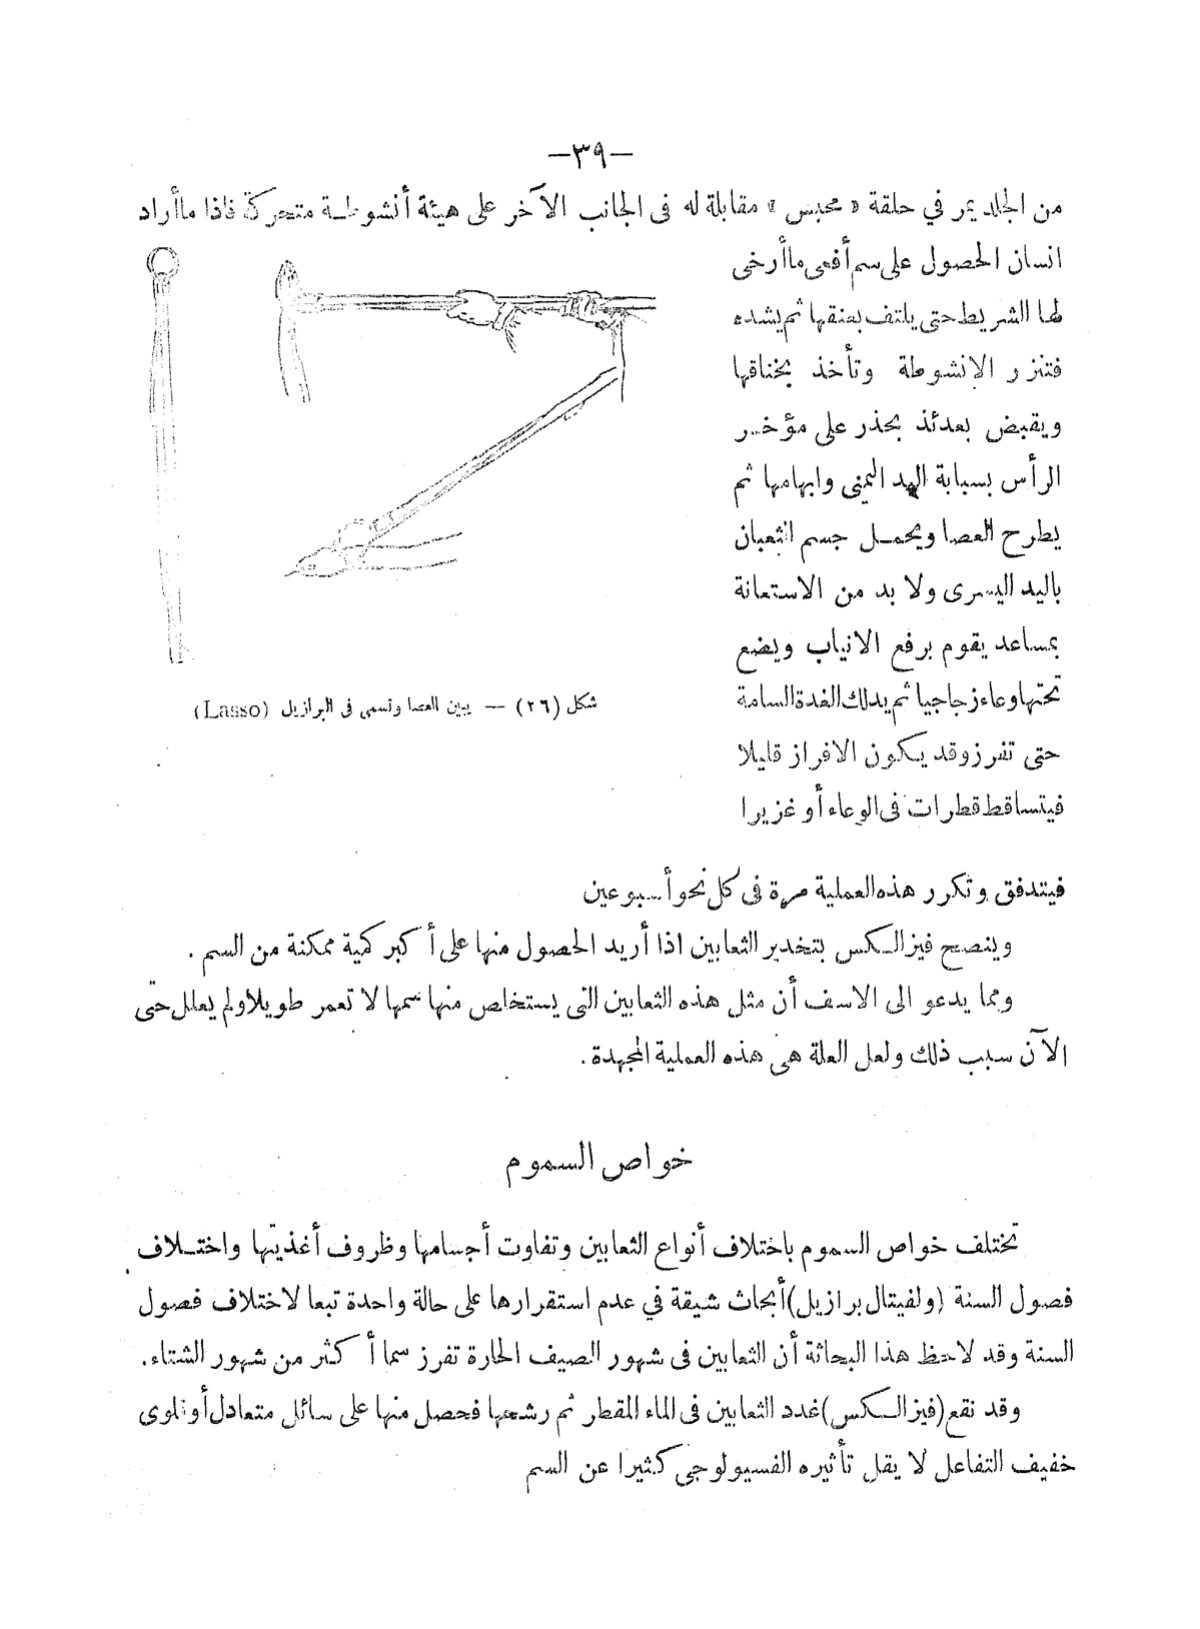 —٣٩—
من الجلد يمر في حلقة « محبس » مقابلة له فى الجانب الآخر على هيئة أنشوطة متحركة فاذا ماأراد
انسان الحصول على سم أفعى ماأرخى
لها الشريط حتى يلتف بعنقها ثم يشده
فتنزر الانشوطة وتأخذ بخناقها
ويقبض بعدئذ بحذر على مؤخر
الرأس بسبابة اليد اليمنى وابهامها ثم
يطرح العصا ويحمل جسم الثعبان
باليد اليسرى ولا بد من الاستعانة
بمساعد يقوم برفع الانياب ويضع
تحتها وعاء زجاجيا ثم يدلك الغدة السامة
حتى تفرز وقد يكون الافراز قليلا
فيتساقط قطرات فى الوعاء أو غزيرا
شكل (٢٦) — يبين العصا وتسمى فى البرازيل (Lasso)
فيتدفق وتكرر هذه العملية مرة فى كل نحو أسبوعين
وينصح فيزالكس بتخدير الثعابين اذا أريد الحصول منها على أكبر كمية ممكنة من السم .
ومما يدعو الى الاسف أن مثل هذه الثعابين التى يستخلص منها سمها لا تعمر طويلا ولم يعلل حتى
الآن سبب ذلك ولعل العلة هى هذه العملية المجهدة .
خواص السموم
تختلف خواص السموم باختلاف أنواع الثعابين وتفاوت أجسامها وظروف أغذيتها واختلاف
فصول السنة (ولفيتال برازيل) أبحاث شيقة في عدم استقرارها على حالة واحدة تبعا لاختلاف فصول
السنة وقد لاحظ هذا البحاثة أن الثعابين فى شهور الصيف الحارة تفرز سما أكثر من شهور الشتاء.
وقد نقع (فيزالكس) غدد الثعابين فى الماء المقطر ثم رشحها فحصل منها على سائل متعادل أو قلوى
خفيف التفاعل لا يقل تأثيره الفسيولوجى كثيرا عن السم